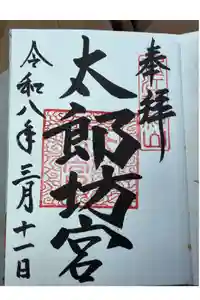 奉拝
太郎坊宮
令和八年三月十一日